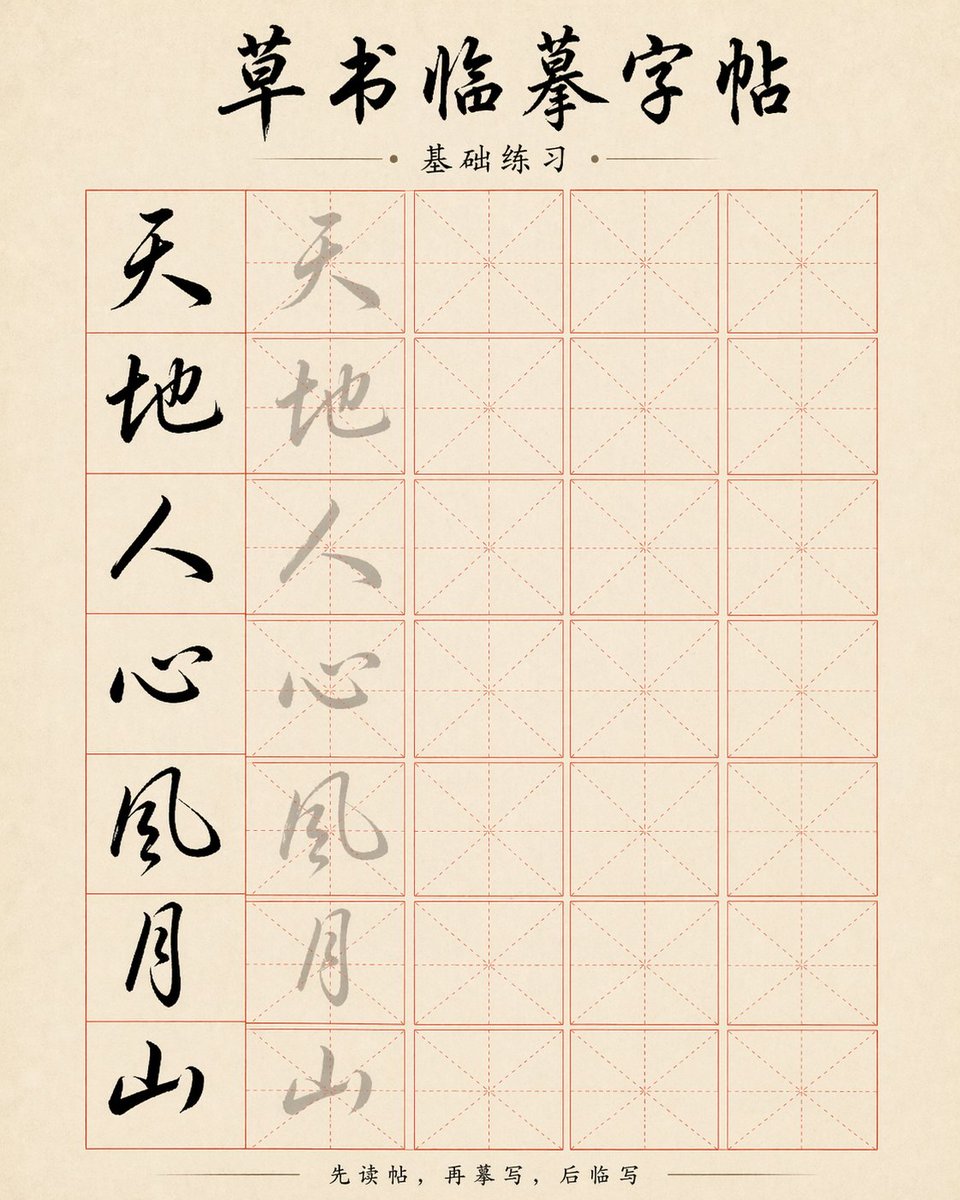 草书临摹字帖
基础练习
天 天
地 地
人 人
心 心
风 风
月 月
山 山
先读帖，再摹写，后临写